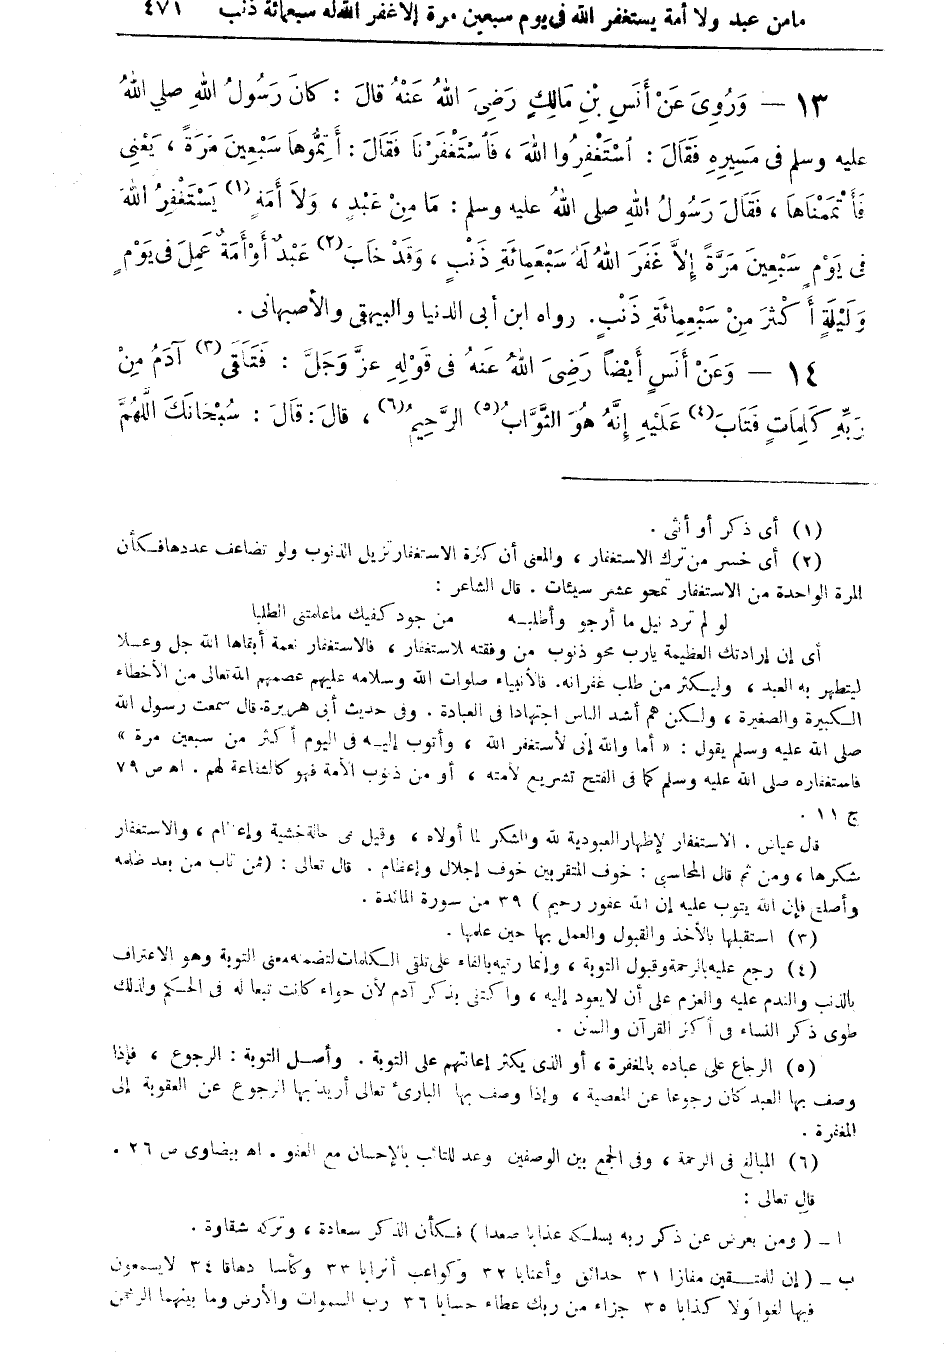 مامن عبد ولا أمة يستغفر الله فى يوم سبعين مرة إلاغفر الله له سبعمائة ذنب ٤٧١
١٣ — وَرُوِىَ عَنْ أَنَسِ بْنِ مَالِكٍ رَضِىَ اللهُ عَنْهُ قالَ : كانَ رَسُولُ اللهِ صلي اللهُ
عليه وسلم فى مَسِيرِهِ فَقَالَ : اُسْتَغْفِرُوا اللهَ ، فَاُسْتَغْفَرْنَا فَقَالَ : أَتِمُّوهاَ سَبْعِينَ مَرَةً ، يَعْنِى
فَأَتْمَمْنَاهاَ ، فَقَالَ رَسُولُ اللهِ صلى اللهُ عليه وسلم : مَا مِنْ عَبْدٍ ، وَلاَ أَمَةٍ (١) يَسْتَغْفِرُ اللهَ
فى يَوْمٍ سَبْعِينَ مَرَّةً إِلاَّ غَفَرَ اللهُ لَهُ سَبْعَمِائَةِ ذَنْبٍ ، وَقَدْ خَابَ (٢) عَبْدٌ أَوْ أَمَةٌ عَمِلَ فى يَوْمٍ
وَلَيْلَةٍ أَكْثَرَ مِنْ سَبْعِمِائَةِ ذَنْبٍ. رواه ابن أبى الدنيا والبيهقى والأصبهانى .
١٤ — وَعَنْ أَنَسٍ أَيْضاً رَضِىَ اللهُ عَنهُ فى قَوْلِهِ عزَّ وَجَلَّ : فَتَلَقَّى (٣) آدَمُ مِنْ
رَبِّهِ كَلِمَاتٍ فَتَابَ (٤) عَلَيْهِ إِنَّهُ هُوَ التَّوَّابُ (٥) الرَّحِيمُ (٦) ، قالَ: قالَ : سُبْحَانَكَ اللَّهُمَّ
(١) أى ذكر أو أنثى .
(٢) أى خسر من ترك الاستغفار ، والمعنى أن كثرة الاستغفار تزيل الذنوب ولو تضاعف عددها فكأن
المرة الواحدة من الاستغفار تمحو عشر سيئات . قال الشاعر :
لو لم ترد نيل ما أرجو وأطلبه من جود كفيك ماعلمتنى الطلبا
أى إن إرادتك العظيمة يارب محو ذنوب من وفقته للاستغفار ، فالاستغفار نعمة أبقاها الله جل وعلا
ليتطهر به العبد ، وليكثر من طلب غفرانه. فالأنبياء صلوات الله وسلامه عليهم عصمهم الله تعالى من الأخطاء
الكبيرة والصغيرة ، ولكن هم أشد الناس اجتهادا فى العبادة . وفى حديث أبى هريرة قال سمعت رسول الله
صلى الله عليه وسلم يقول : « أما والله إنى لأستغفر الله ، وأتوب إليه فى اليوم أكثر من سبعين مرة »
فاستغفاره صلى الله عليه وسلم كما فى الفتح تشريع لأمته ، أو من ذنوب الأمة فهو كالشفاعة لهم . اه ص ٧٩
ج ١١ .
قل عياض . الاستغفار لإظهار العبودية لله والشكر لما أولاه ، وقيل هى حالة خشية وإعظام ، والاستغفار
شكرها ، ومن ثم قال المحاسبى : خوف المتقربين خوف إجلال وإعظام . قال تعالى : (فمن تاب من بعد ظلمه
وأصلح فإن الله يتوب عليه إن الله غفور رحيم ) ٣٩ من سورة المائدة .
(٣) استقبلها بالأخذ والقبول والعمل بها حين علمها .
(٤) رجع عليه بالرحمة وقبول التوبة ، وإنما رتبه بالفاء على تلقى الكلمات لتضمنه معنى التوبة وهو الاعتراف
بالذنب والندم عليه والعزم على أن لايعود إليه ، واكتفى بذكر آدم لأن حواء كانت تبعا له فى الحكم ولذلك
طوى ذكر النساء فى أكثر القرآن والسنن .
(٥) الرجاع على عباده بالمغفرة ، أو الذى يكثر إعانتهم على التوبة . وأصل التوبة : الرجوع ، فإذا
وصف بها العبد كان رجوعا عن المعصية ، وإذا وصف بها البارئ تعالى أريد بها الرجوع عن العقوبة إلى
المغفرة .
(٦) المبالغ فى الرحمة ، وفى الجمع بين الوصفين وعد للتائب بالإحسان مع العفو . اه بيضاوى ص ٢٦ .
قال تعالى :
ا ـ ( ومن يعرض عن ذكر ربه يسلكه عذابا صعدا ) فكأن الذكر سعادة ، وتركه شقاوة .
ب ـ ( إن للمتقين مفازا ٣١ حدائق وأعنابا ٣٢ وكواعب أترابا ٣٣ وكأسا دهاقا ٣٤ لايسمعون
فيها لغوا ولا كذابا ٣٥ جزاء من ربك عطاء حسابا ٣٦ رب السموات والأرض وما بينهما الرحمن